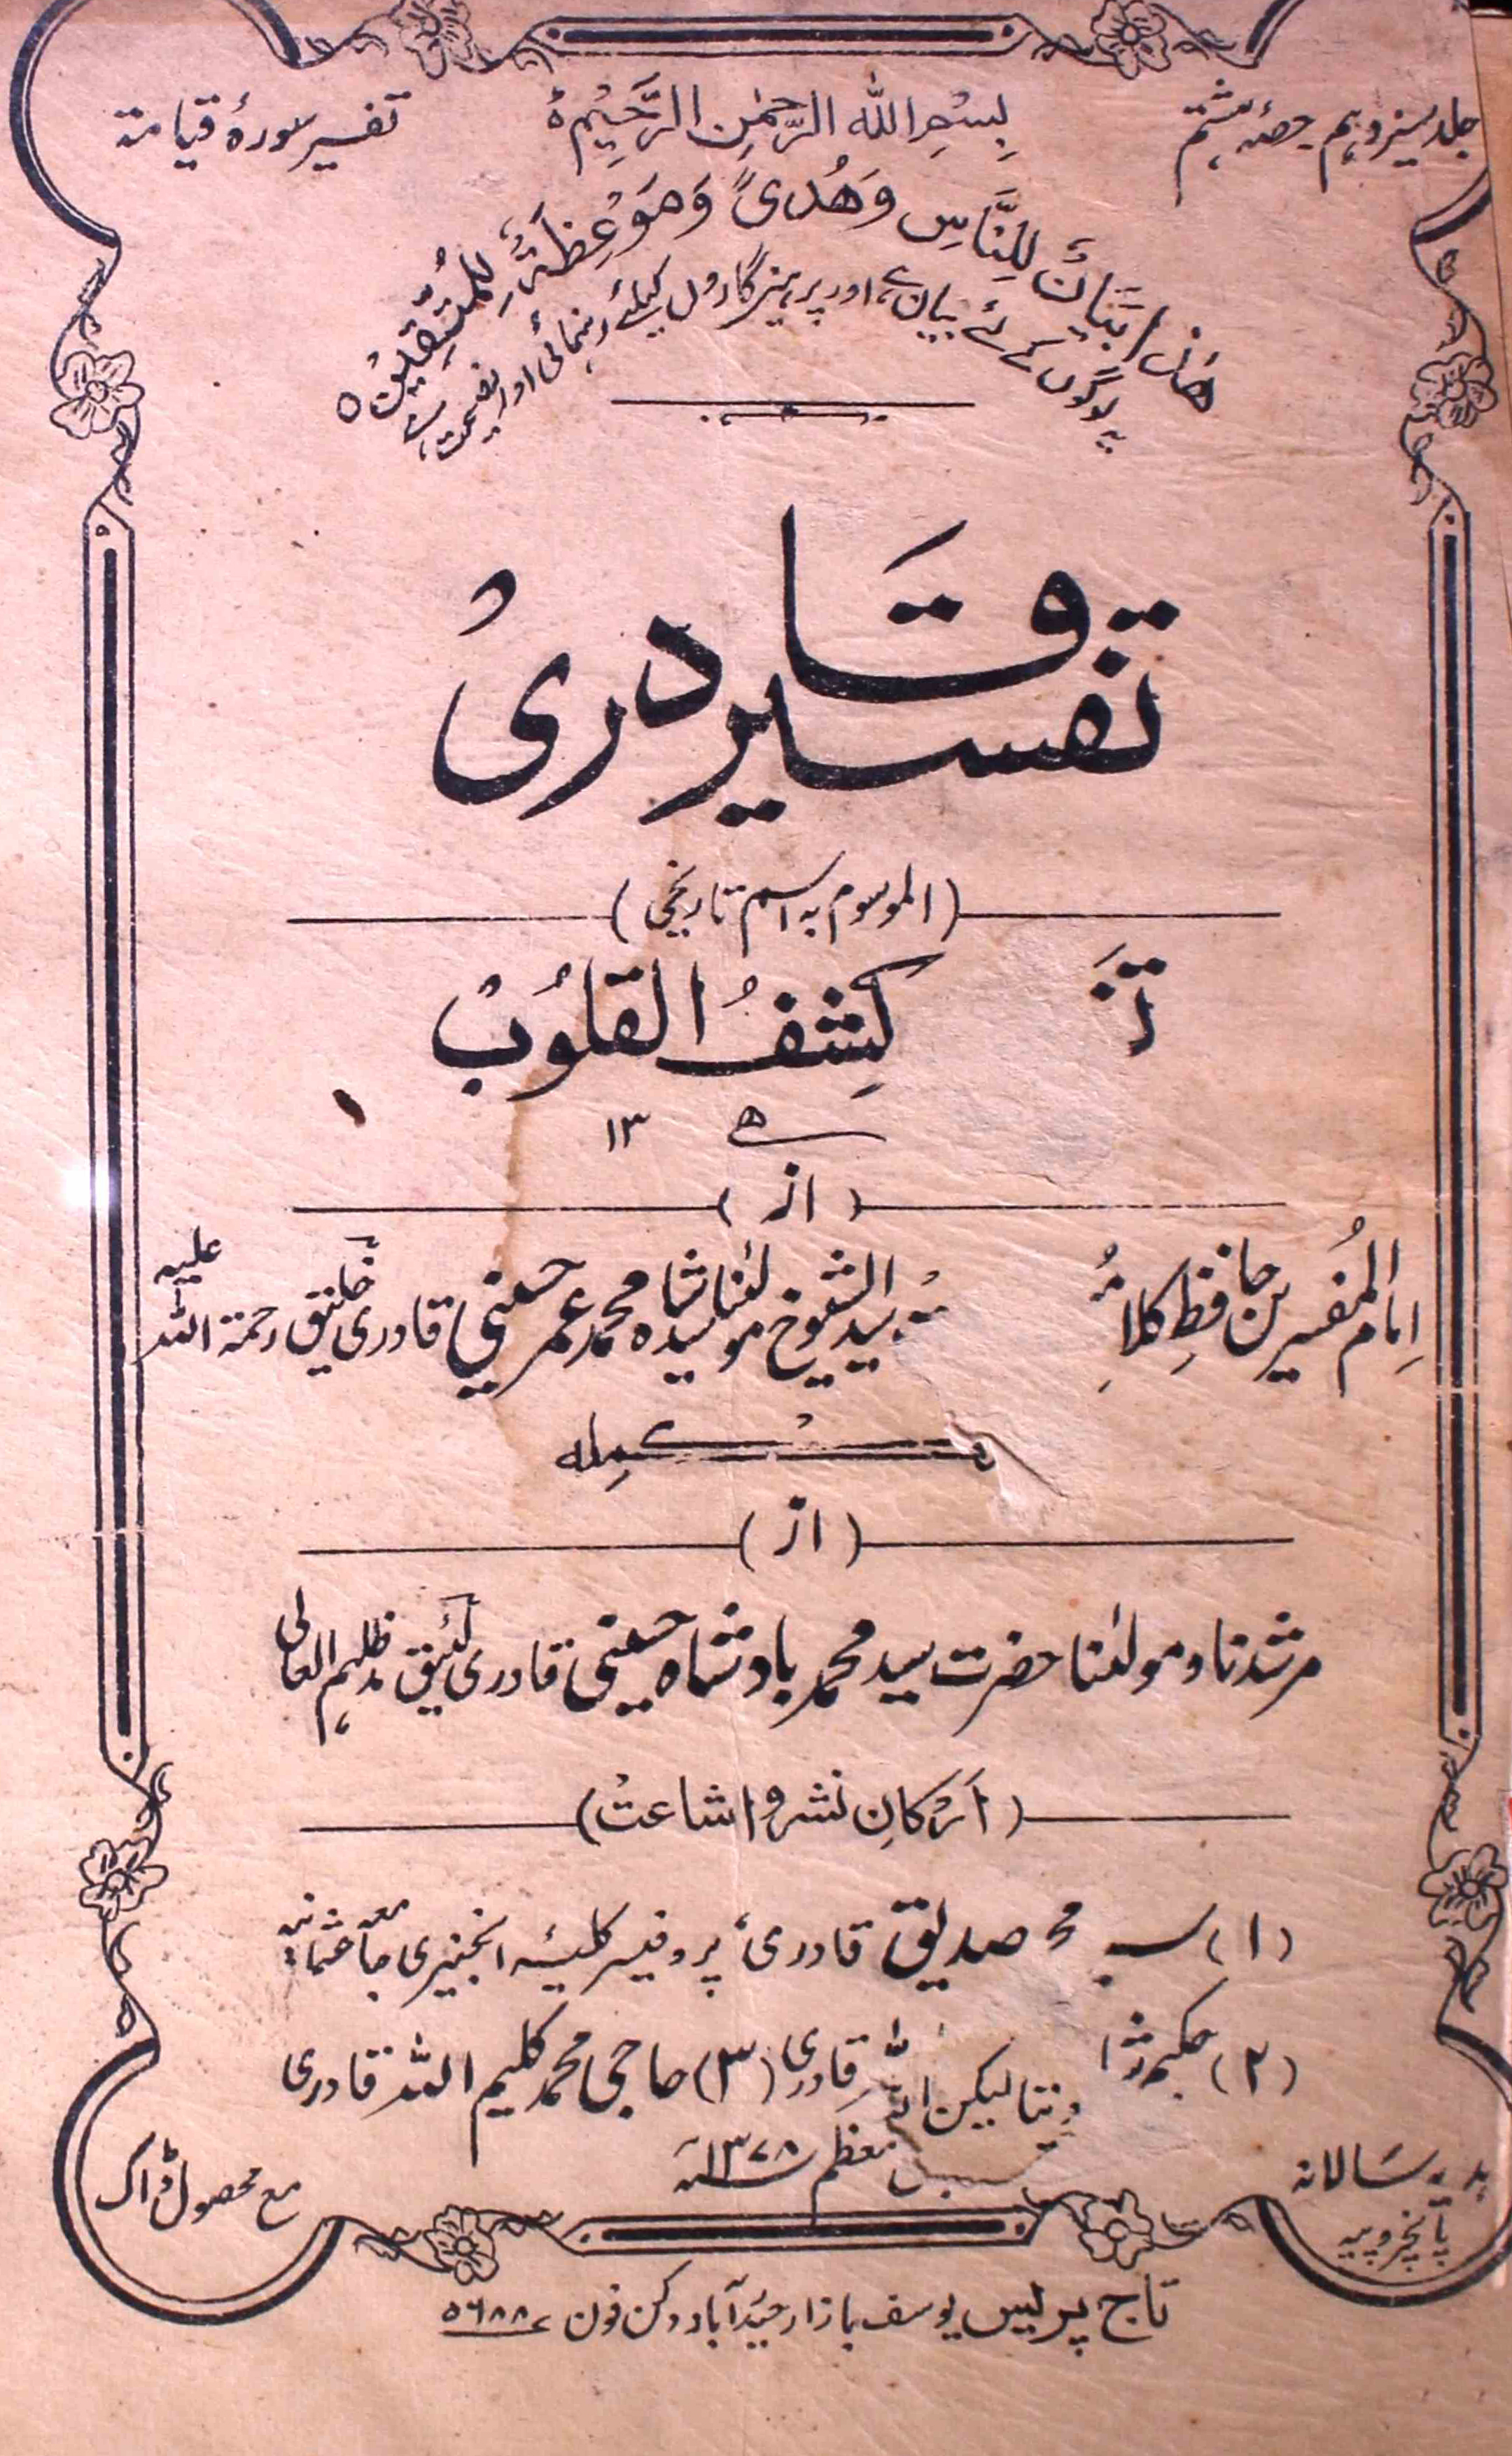 جلد سیزدہم حصۂ ہشتم
بِسْمِ اللّٰہِ الرَّحْمٰنِ الرَّحِیْمِ
تفسیر سورۂ قیامۃ
ھٰذَا بَیَانٌ لِّلنَّاسِ وَھُدًی وَّمَوْعِظَۃٌ لِّلْمُتَّقِیْنَ ٥
یہ لوگوں کے لئے بیان ہے، اور پرہیزگاروں کیلئے رہنمائی اور نصیحت ہے
تفسیر قادری
(الموسوم بہ اسم تاریخی)
کشف القلوب
۱۳ ھ
(از)
امام المفسرین حافظِ کلام سید الشیوخ مولٰنا سیدشاہ محمد عمر حسینی قادری خلیق رحمۃ اللہ علیہ
(از)
مرشدنا و مولٰنا حضرت سید محمد بادشاہ حسینی قادری لئیق مدظلہم العالی
(ارکانِ نشر و اشاعت)
(۱) محمد صدیق قادری، پروفیسر کلیۂ انجنیری جامعہ عثمانیہ
(۲) حکیم قادری (۳) حاجی محمد کلیم اللہ قادری
معظم ۱۳۷۸ھ
ہدیہ سالانہ
پانچروپیہ
مع محصول ڈاک
تاج پریس یوسف بازار حیدرآباد دکن فون ۵۶۸۸